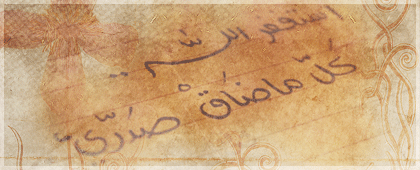 استغفر الله ..
كلّ ما ضاق صدري ..